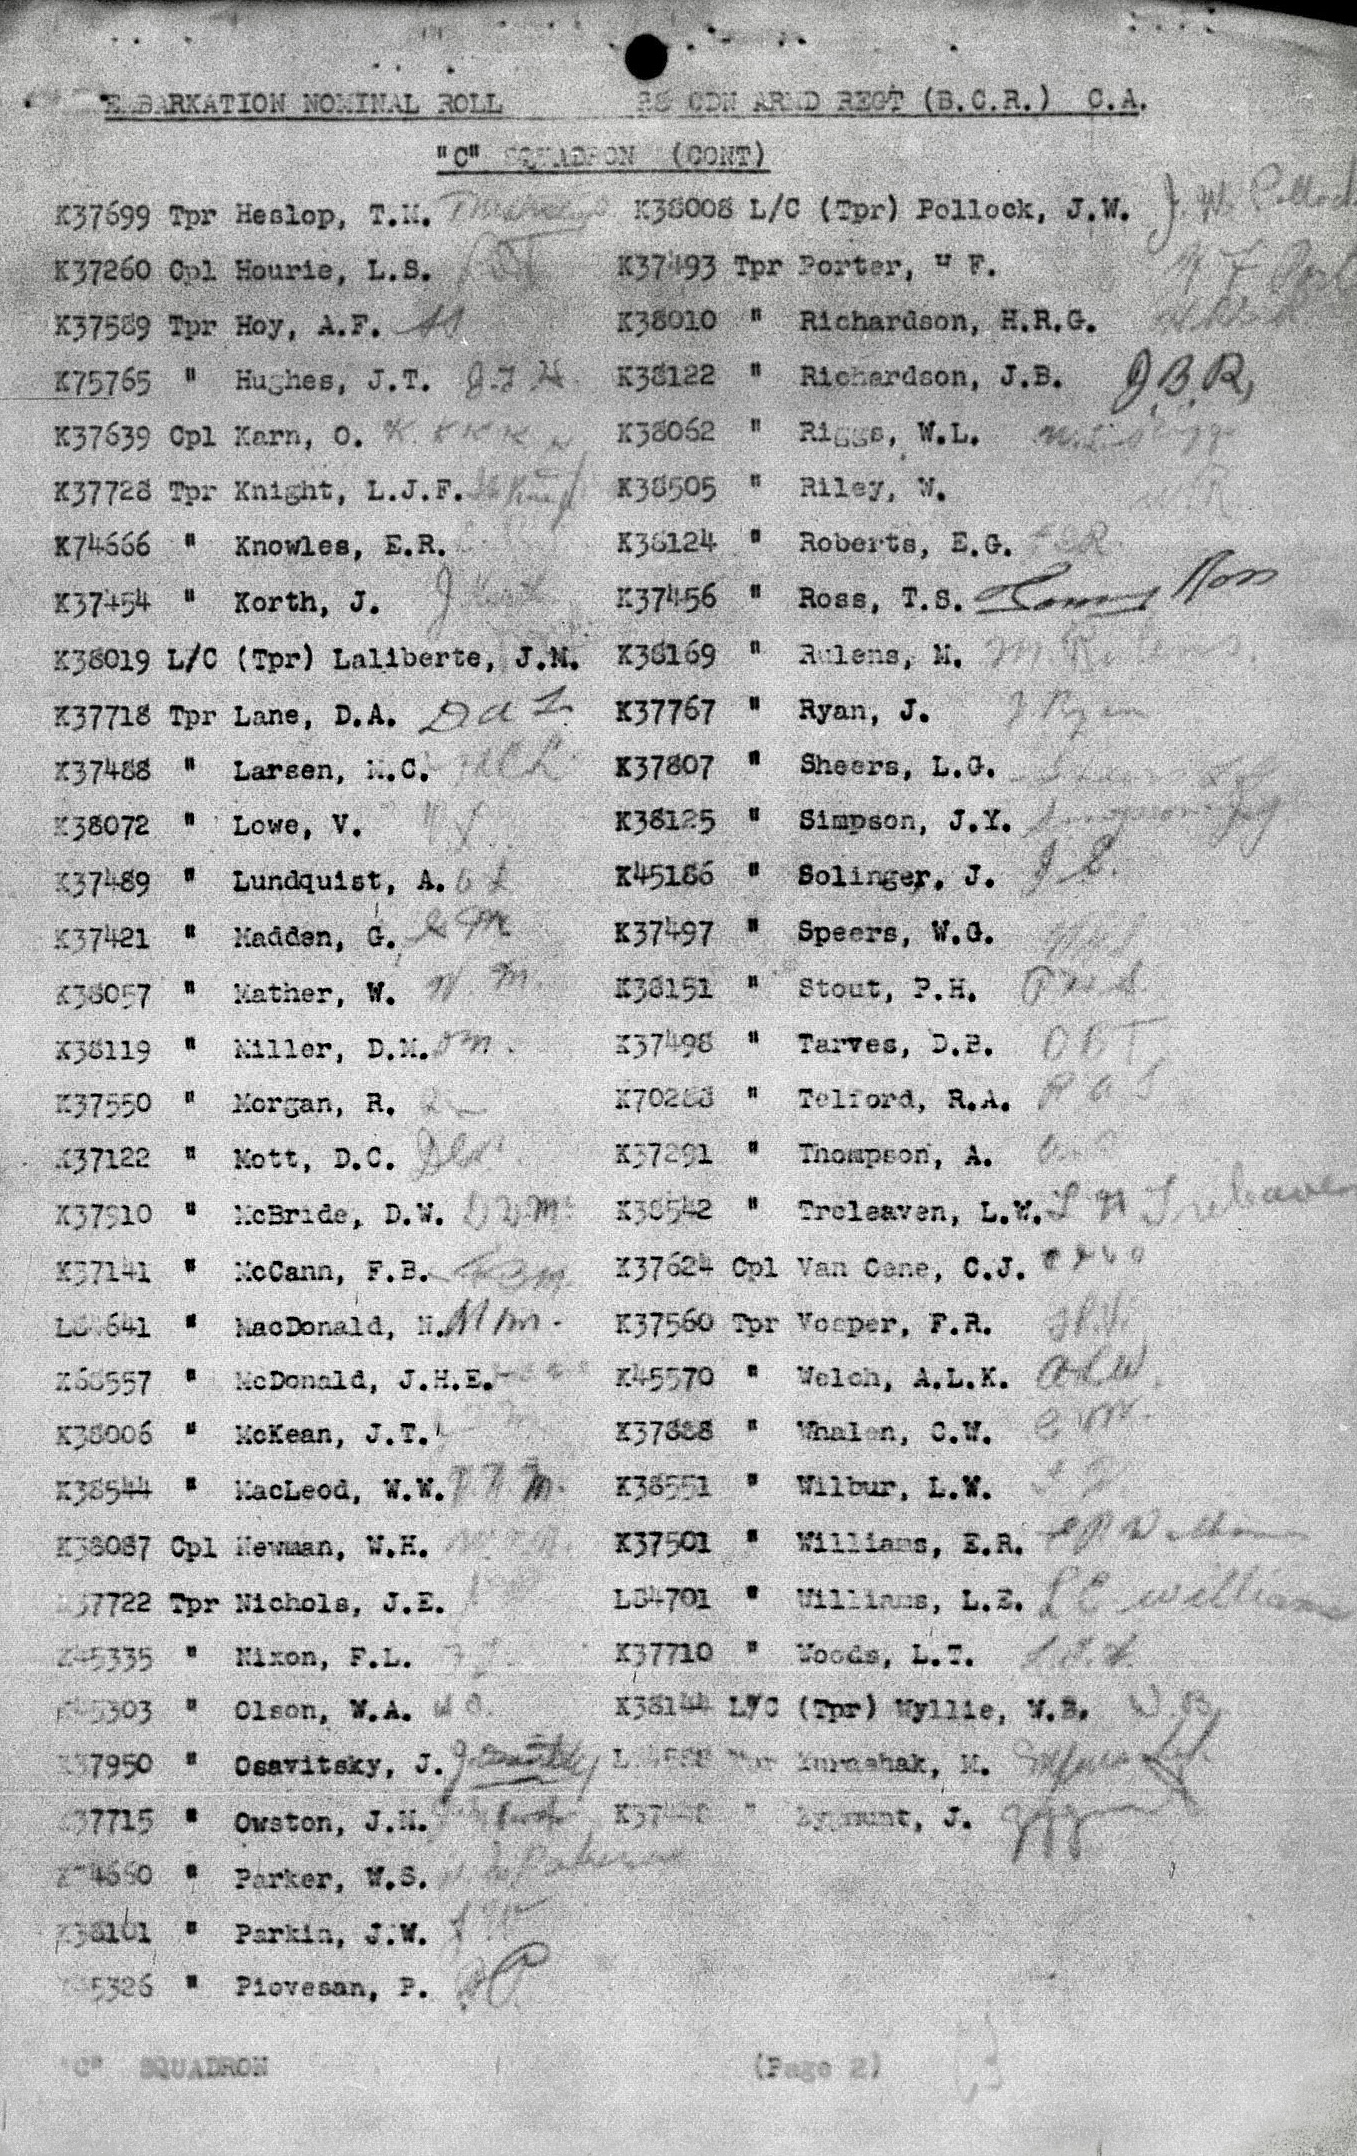 EMBARKATION NOMINAL ROLL 28 CDN ARMD REGT (B.C.R.) C.A.
"C" SQUADRON (CONT)
K37699 Tpr Heslop, T.M.
K37260 Cpl Hourie, L.S.
K37589 Tpr Hoy, A.F.
K75765 " Hughes, J.T. J.T.H.
K37639 Cpl Karn, O.
K37728 Tpr Knight, L.J.F.
K74666 " Knowles, E.R.
K37454 " Korth, J. J Korth
K38019 L/C (Tpr) Laliberte, J.M.
K37718 Tpr Lane, D.A. D a L
K37488 " Larsen, M.C. MCL
K38072 " Lowe, V.
K37489 " Lundquist, A.
K37421 " Madden, G. G M
K38057 " Mather, W. W. M.
K38119 " Miller, D.M. DM.
K37550 " Morgan, R.
K37122 " Mott, D.C.
K37910 " McBride, D.W. D.W.M.
K37141 " McCann, F.B. F B M
" MacDonald, N. N M.
K68557 " McDonald, J.H.E.
K38006 " McKean, J.T.
K38544 " MacLeod, W.W.
K38087 Cpl Newman, W.H.
37722 Tpr Nichols, J.E.
45335 " Nixon, F.L.
45303 " Olson, W.A. W O.
K37950 " Osavitsky, J. J. Osavitsky
37715 " Owston, J.H.
" Parker, W.S.
K38101 " Parkin, J.W.
45326 " Piovesan, P. P P
K38008 L/C (Tpr) Pollock, J.W. J. W. Pollock
K37493 Tpr Porter, F.
K38010 " Richardson, H.R.G.
K38122 " Richardson, J.B. J.B.R,
K38062 " Riggs, W.L. W.L. Riggs
K38505 " Riley, W. W R
K38124 " Roberts, E.G. EGR
K37456 " Ross, T.S. Tommy Ross
K38169 " Rulens, M. M Rulens.
K37767 " Ryan, J. J. Ryan
K37807 " Sheers, L.G. Sheers L G
K38125 " Simpson, J.Y. Simpson Jy
K45186 " Solinger, J. J S.
K37497 " Speers, W.G. W G S
K38151 " Stout, P.H. P H S
K37498 " Tarves, D.B. D B T
K70288 " Telford, R.A. R A T
K37291 " Thompson, A.
K38542 " Treleaven, L.W. L W Treleaven
K37624 Cpl Van Cene, C.J.
K37560 Tpr Vosper, F.R.
K45570 " Welch, A.L.K. ALW.
K37888 " Whalen, C.W. C W.
K38551 " Wilbur, L.W.
K37501 " Williams, E.R. E R Williams
L84701 " Williams, L.E. L E Williams
K37710 " Woods, L.T.
K38144 L/C (Tpr) Wyllie, W.B. W.B.
Tpr Yurashak, M.
" Zygmunt, J.
"C" SQUADRON (Page 2)